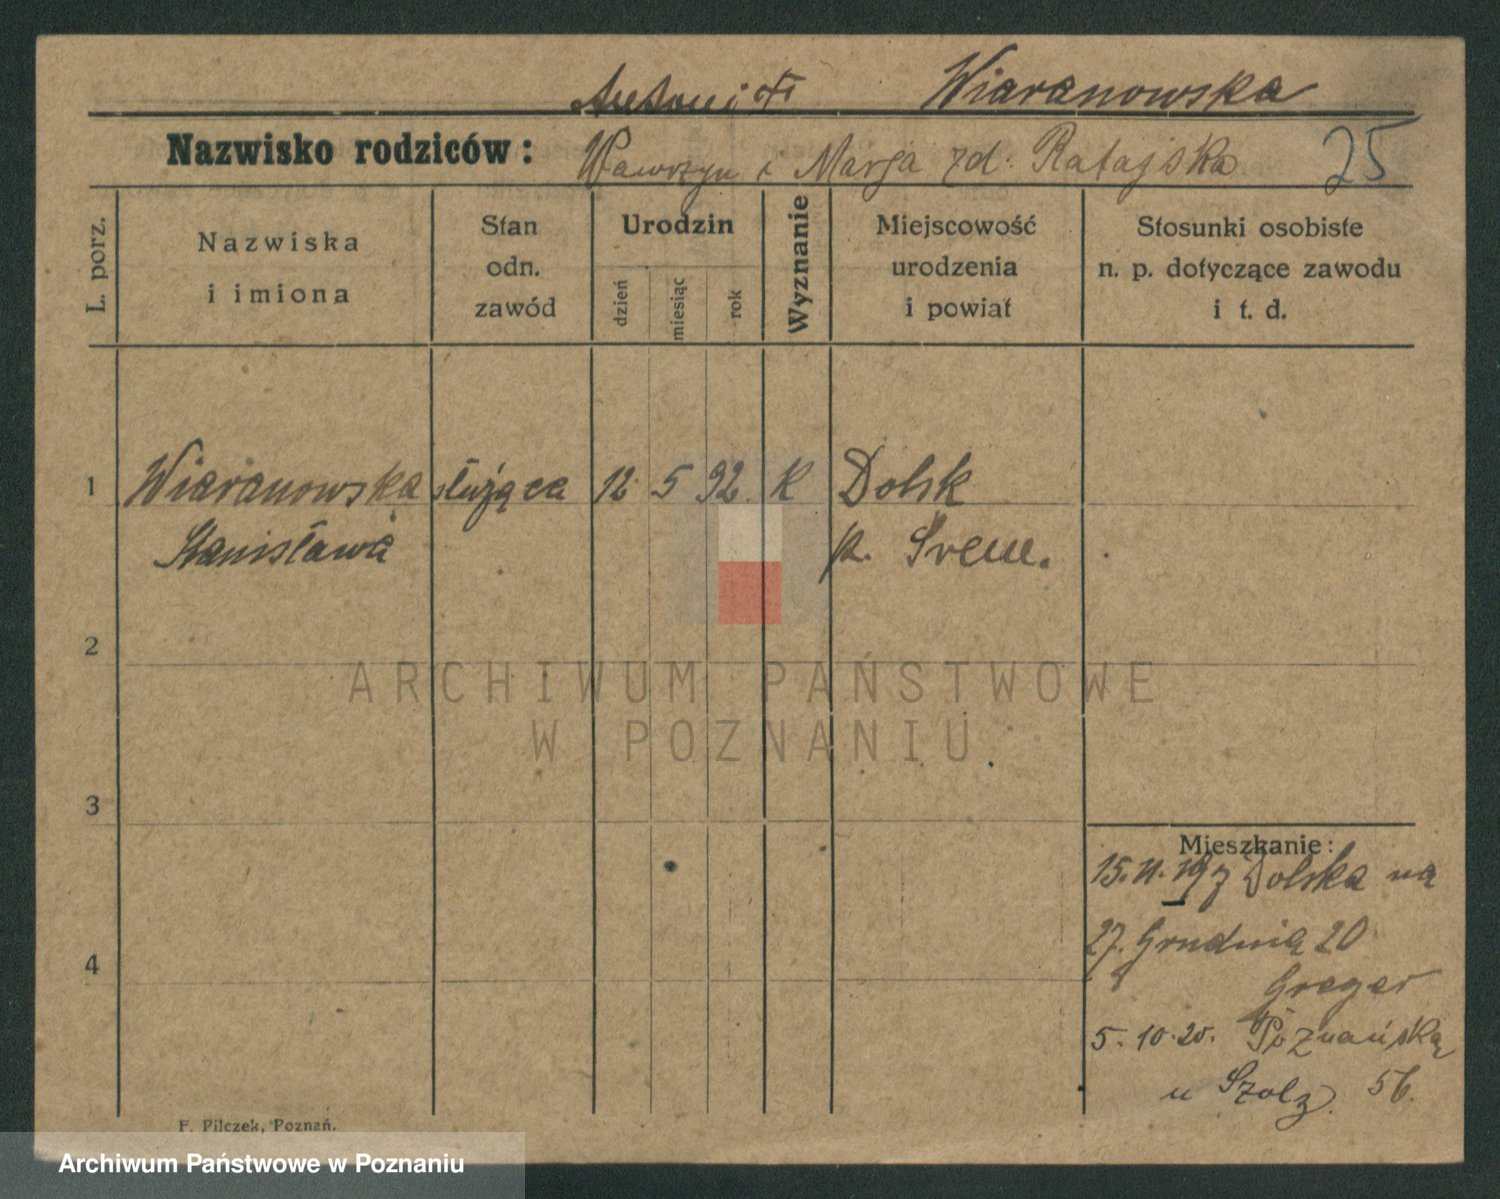 Antoni Wiaranowska
Nazwisko rodziców: Wawrzyn i Marja zd. Ratajska 25
L. porz.
Nazwiska
i imiona
Stan
odn.
zawód
Urodzin
dzień
miesiąc
rok
Wyznanie
Miejscowość
urodzenia
i powiat
Stosunki osobiste
n. p. dotyczące zawodu
i t. d.
1 Wiaranowska służąca 12 5 92 K Dolsk
Stanisława p. Śrem.
2
ARCHIWUM PAŃSTWOWE
W POZNANIU
3
Mieszkanie:
15.11.19 z Dolska na
27. Grudnia 20
4
Greger
5.10.20. Poznańska
u Szolz 56.
F. Pilczek, Poznań.
Archiwum Państwowe w Poznaniu